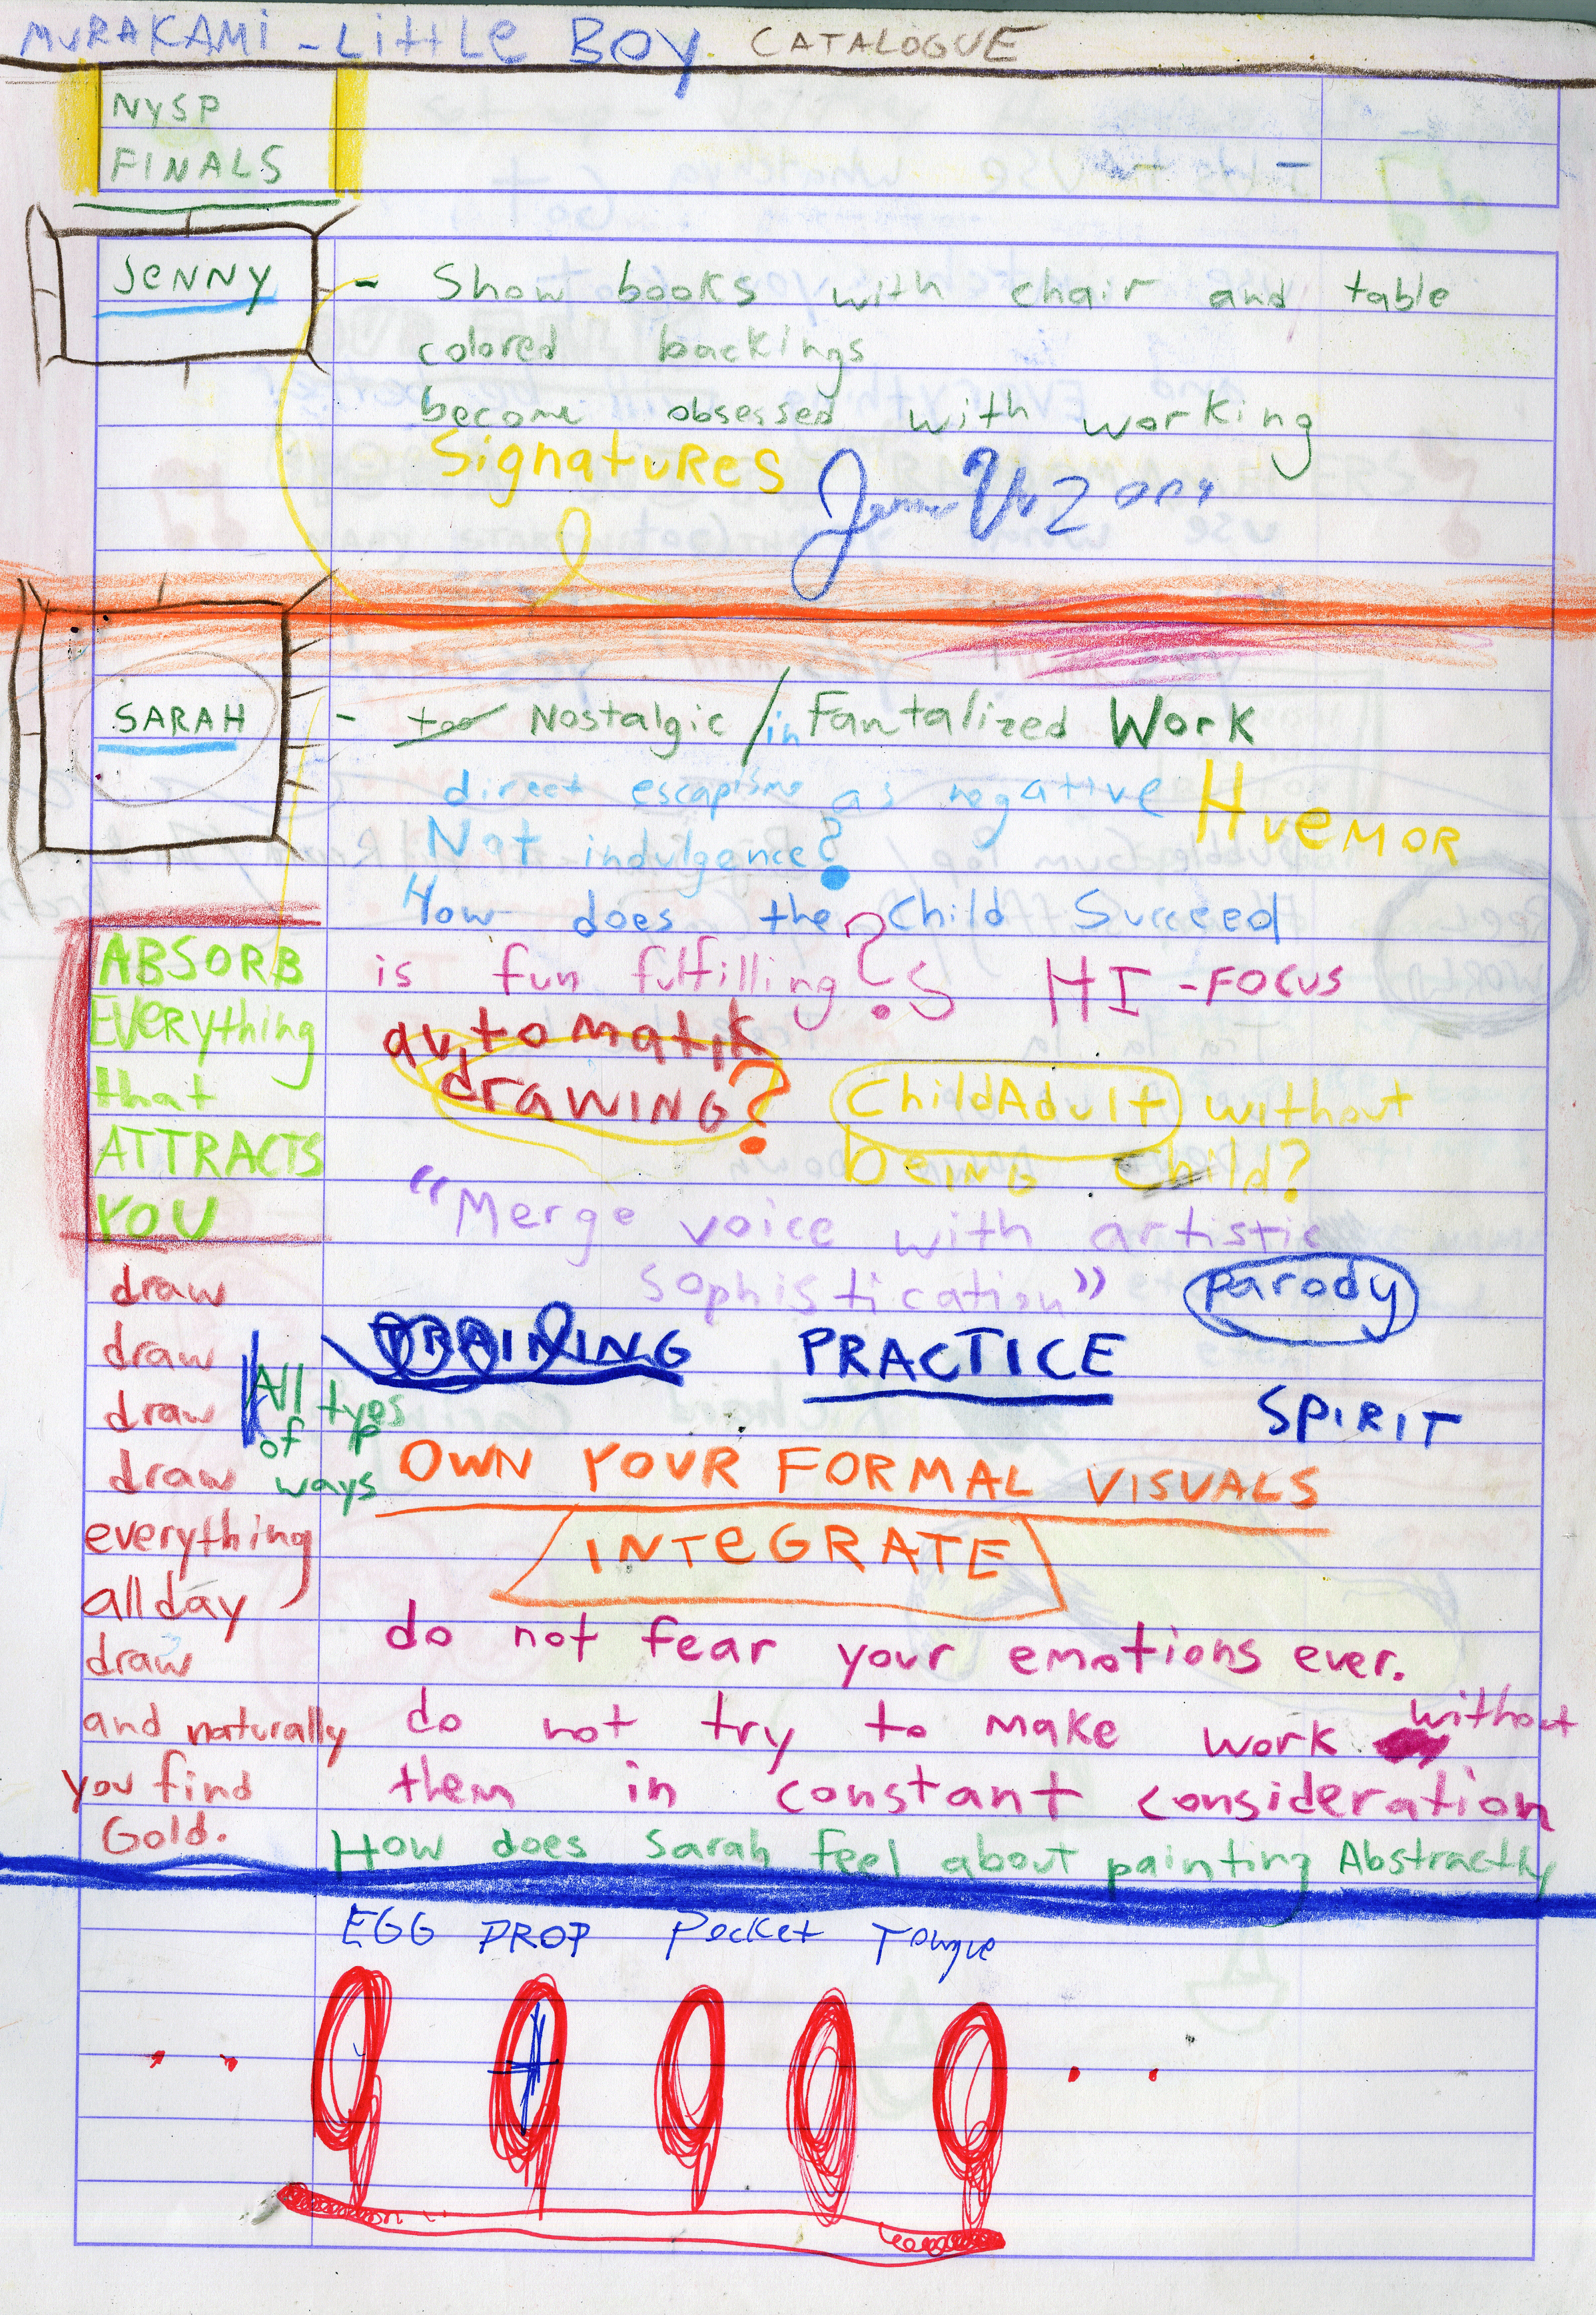 MURAKAMI - LittLe BOY. CATALOGUE
NYSP
FINALS
JENNY
- Show books with chair and table
colored backings
become obsessed with working
SignatuRES
SARAH
- too Nostalgic / in Fantalized Work
direct escapisme as negative
HueMOR
Not indulgence?
How does the Child Succeed
is fun fulfilling? HI-FOCUS
automatik
drAWING?
ChildAdult without
bEING Child?
"Merge voice with artistic
sophistication"
parody
TRAINING PRACTICE
SPIRIT
OWN YOUR FORMAL VISUALS
INTEGRATE
do not fear your emotions ever.
do not try to make work without
them in constant consideration
How does Sarah feel about painting Abstractly
ABSORB
EVERything
that
ATTRACTS
YOU
draw
draw
draw
draw
All types
of
ways
everything
all day
draw
and naturally
you find
Gold.
EGG DROP Pocket Tongue